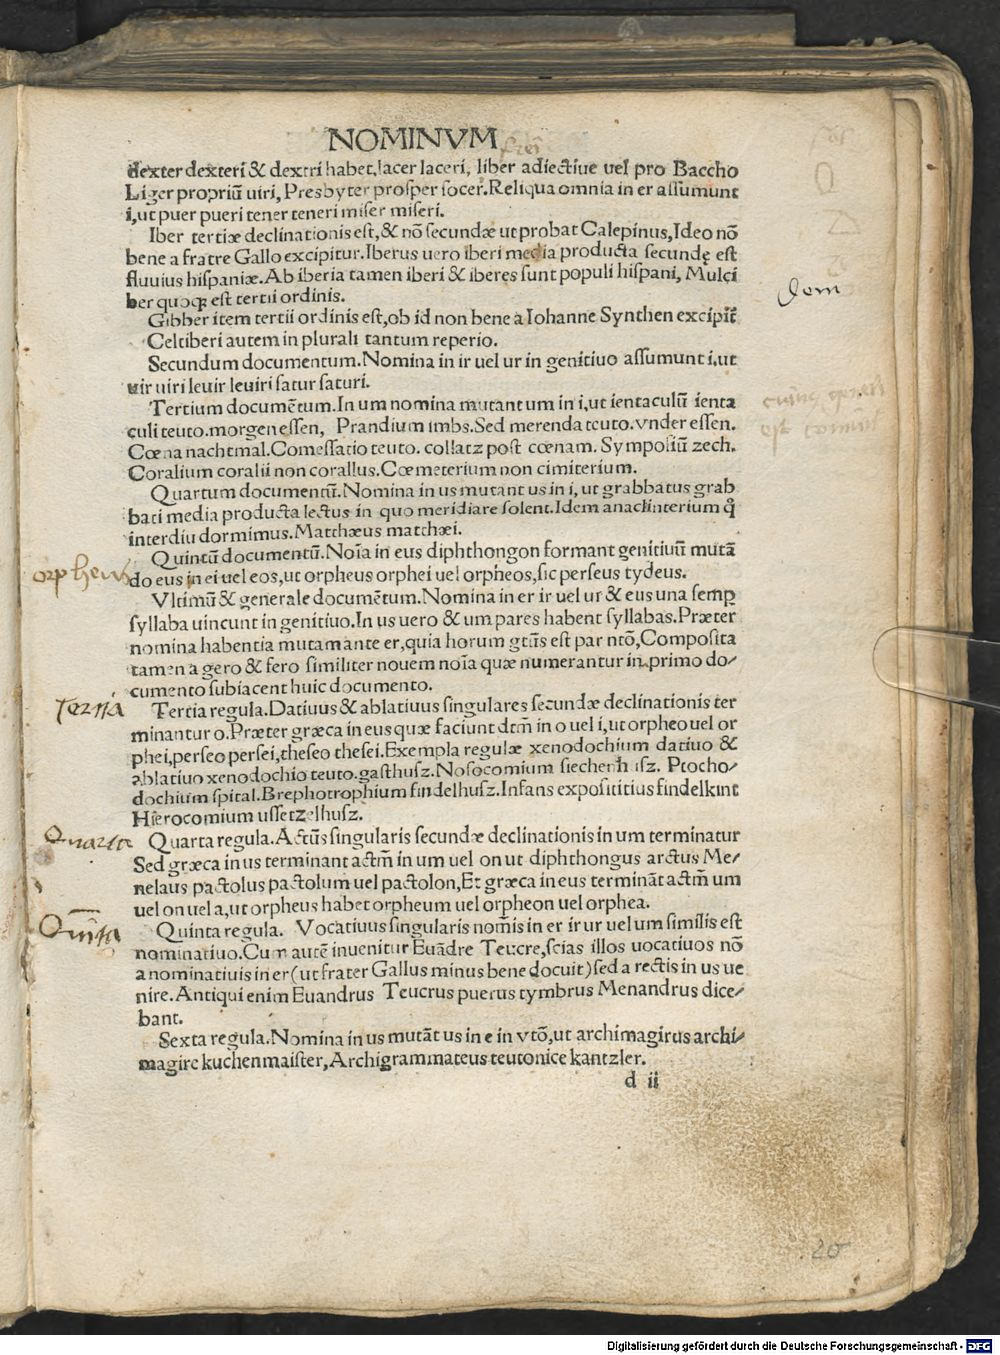 NOMINVM
dexter dexteri & dextri habet, lacer laceri, liber adiectiue uel pro Baccho
Liger propriũ uiri, Presbyter prosper socer. Reliqua omnia in er assumunt
i, ut puer pueri tener teneri miser miseri.
Iber tertiæ declinationis est, & nõ secundæ ut probat Calepinus, Ideo nõ
bene a fratre Gallo excipitur. Iberus uero iberi media producta secundę est
fluuius hispaniæ. Ab iberia tamen iberi & iberes sunt populi hispani, Mulci
ber quoqꝫ est tertii ordinis.
Dom
Gibber item tertii ordinis est, ob id non bene a Iohanne Synthen excipit̃
Celtiberi autem in plurali tantum reperio.
Secundum documentum. Nomina in ir uel ur in genitiuo assumunt i, ut
uir uiri leuir leuiri satur saturi.
Tertium documẽtum. In um nomina mutant um in i, ut ientaculũ ienta
culi teuto. morgen essen, Prandium imbs. Sed merenda teuto. vnder essen.
Cœna nachtmal. Comessatio teuto. collatz post cœnam. Symposiũ zech.
Coralium coralii non corallus. Cœmeterium non cimiterium.
Quartum documentũ. Nomina in us mutant us in i, ut grabbatus grab
bati media producta lectus in quo meridiare solent. Idem anaclinterium q̃
interdiu dormimus. Matthæus matthæi.
orpheus
Quintũ documentũ. Noĩa in eus diphthongon formant genitiuũ mutã
do eus in ei uel eos, ut orpheus orphei uel orpheos, sic perseus tydeus.
Vltimũ & generale documẽtum. Nomina in er ir uel ur & eus una semp̱
syllaba uincunt in genitiuo. In us uero & um pares habent syllabas. Præter
nomina habentia mutam ante er, quia horum gtũs est par ntõ, Composita
tamen a gero & fero similiter nouem noĩa quæ numerantur in primo do⸗
cumento subiacent huic documento.
Tertia
Tertia regula. Datiuus & ablatiuus singulares secundæ declinationis ter
minantur o. Præter græca in eus quæ faciunt dtm̃ in o uel i, ut orpheo uel or
phei, perseo persei, theseo thesei. Exempla regulæ xenodochium datiuo &
ablatiuo xenodochio teuto. gasthusz. Nosocomium siechenhusz. Ptocho⸗
dochium spital. Brephotrophium findelhusz. Infans exposititius findelkint
Hierocomium ussetzelhusz.
Quarta
Quarta regula. Actũs singularis secundæ declinationis in um terminatur
Sed græca in us terminant actm̃ in um uel on ut diphthongus arctus Me⸗
nelaus pactolus pactolum uel pactolon, Et græca in eus terminãt actm̃ um
uel on uel a, ut orpheus habet orpheum uel orpheon uel orphea.
Quĩta
Quinta regula. Vocatiuus singularis nom̃is in er ir ur uel um similis est
nominatiuo. Cum autẽ inuenitur Euãdre Teucre, scias illos uocatiuos nõ
a nominatiuis in er (ut frater Gallus minus bene docuit) sed a rectis in us ue
nire. Antiqui enim Euandrus Teucrus puerus tymbrus Menandrus dice⸗
bant.
Sexta regula. Nomina in us mutãt us in e in vtõ, ut archimagirus archi⸗
magire kuchenmaister, Archigrammateus teutonice kantzler.
d ii
20
Digitalisierung gefördert durch die Deutsche Forschungsgemeinschaft - DFG